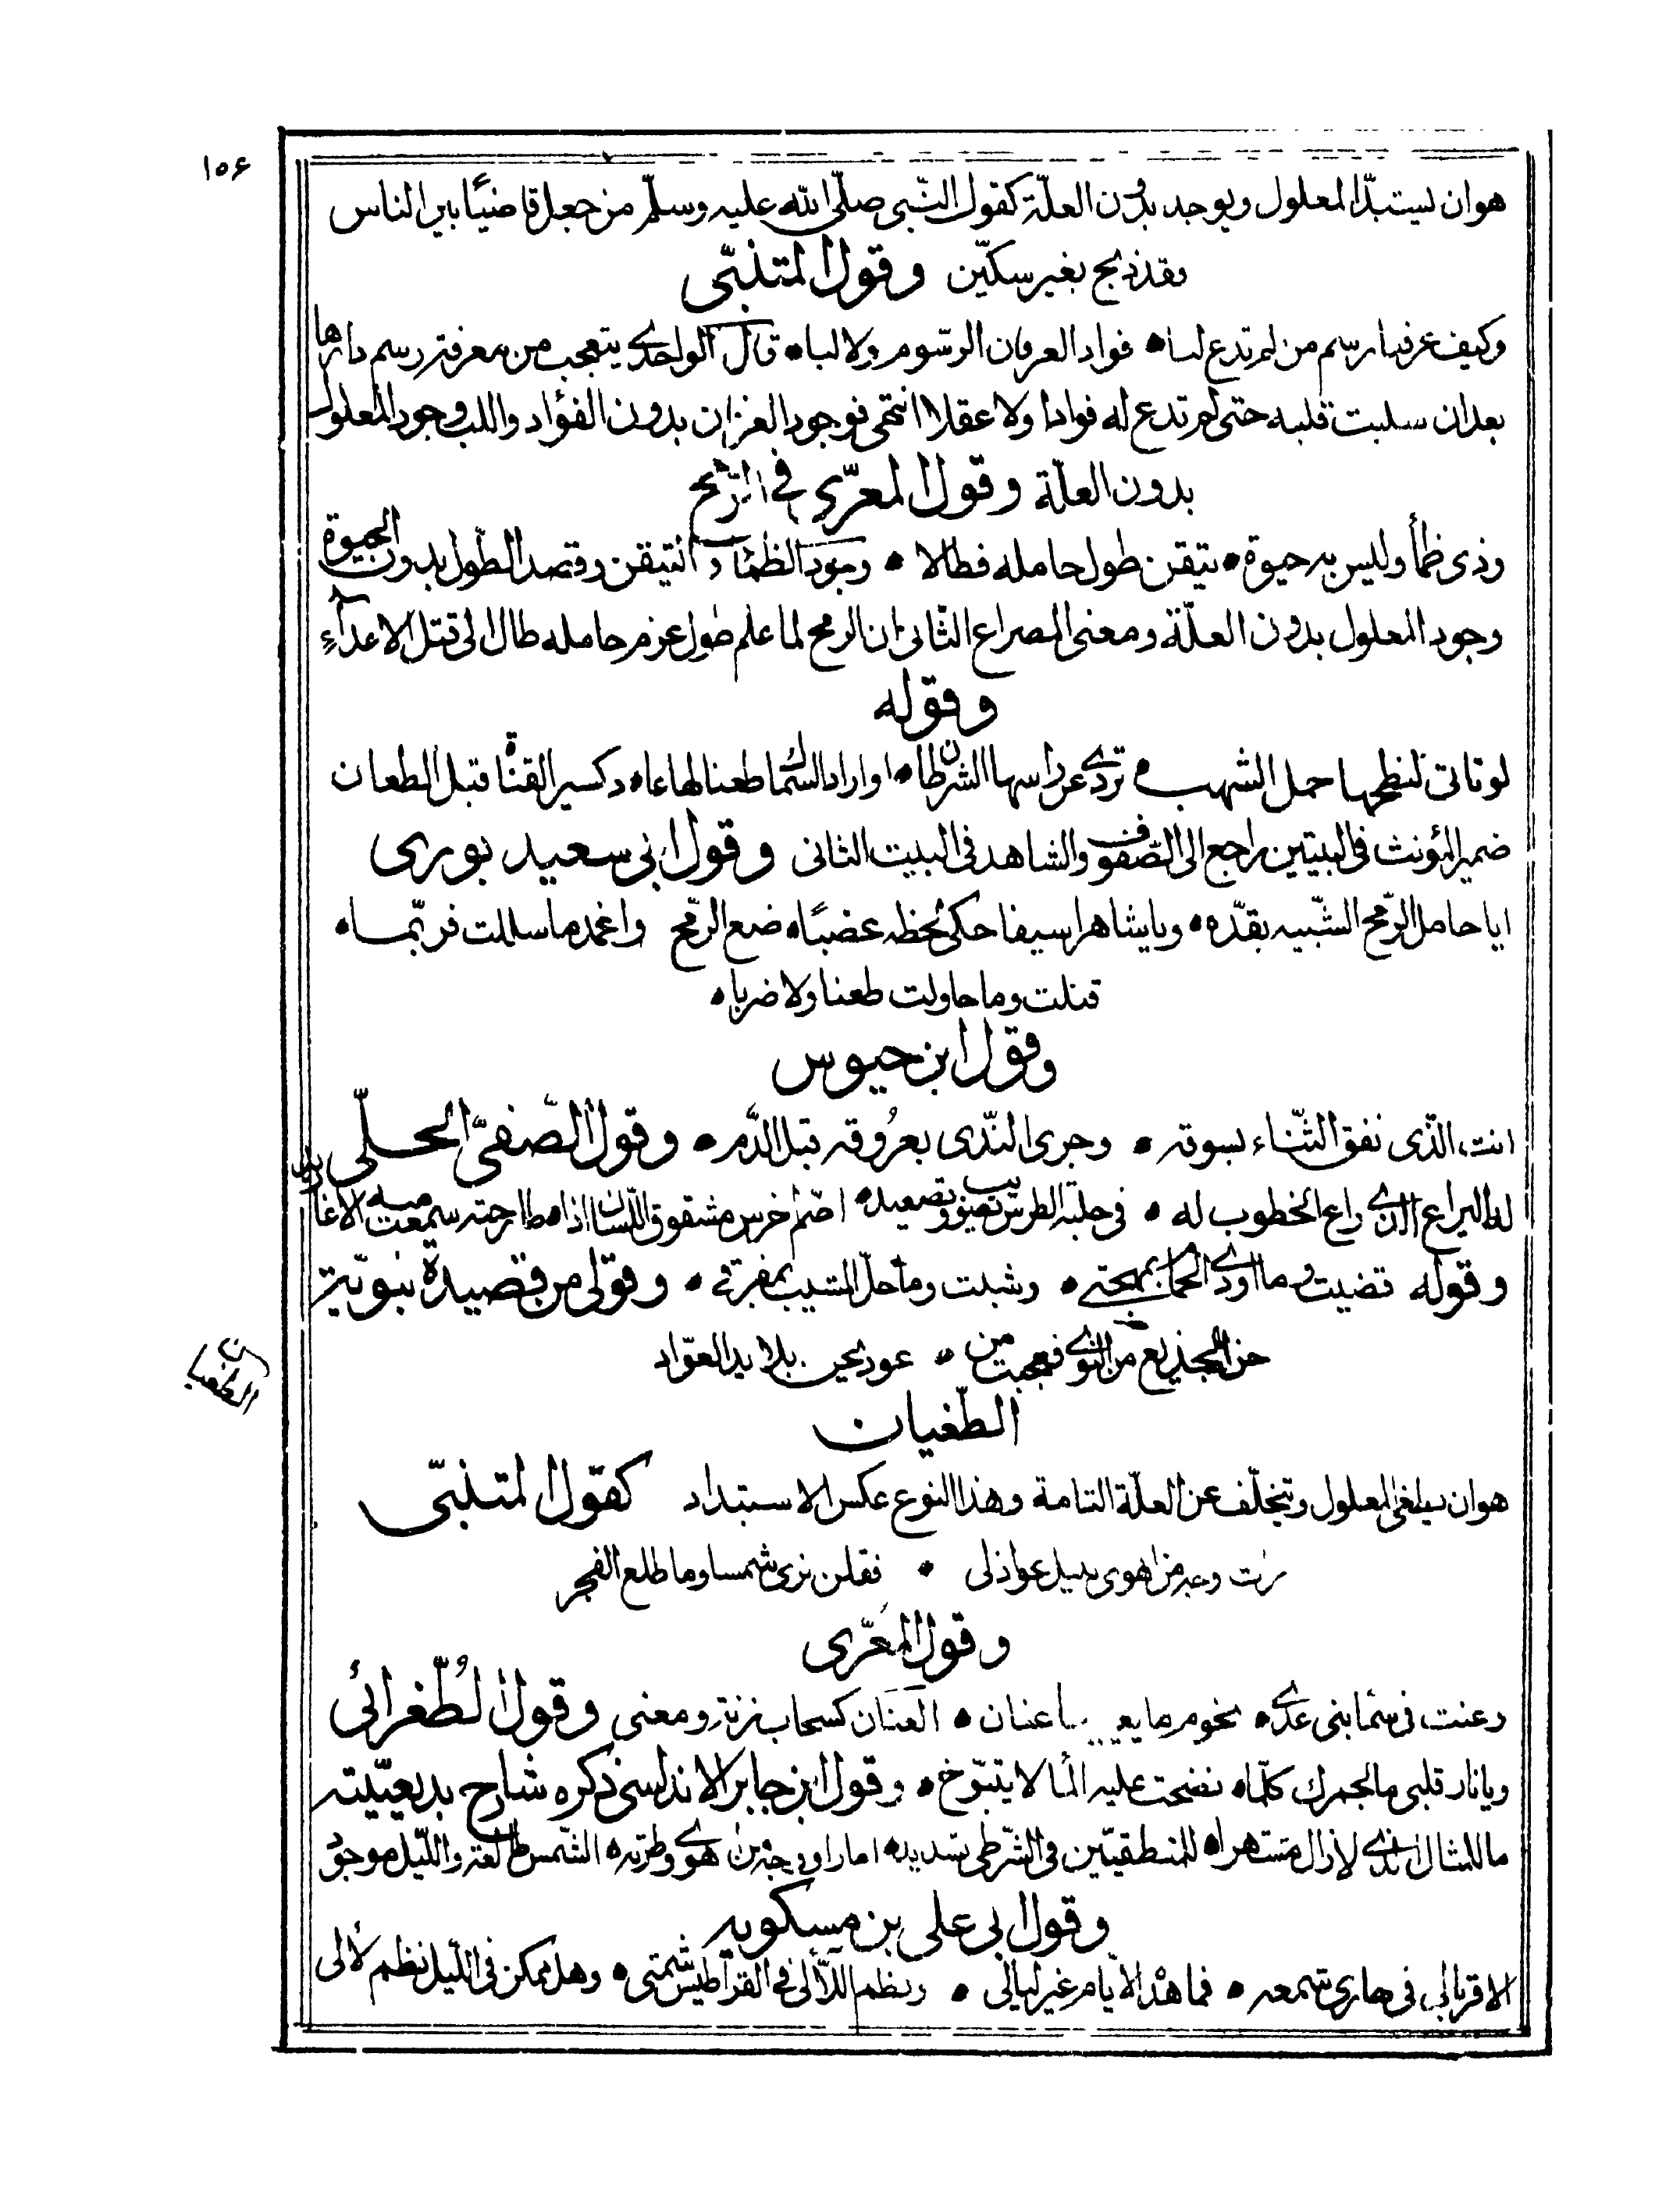 ١٥٦
هو ان يستبدّ المعلول ويوجد بدون العلّة كقول النّبى صلّى الله عليه وسلّم من جعل قاضيًا بين الناس
فقد ذبح بغير سكّين وقول المتنبّى
وكيف عرفنا رسم من لم تدع لنا ٥ فواد العرفان الرّسوم ولا لبا ٥ قال الواحدى يتعجب من معرفته رسم دارها
بعد ان سلبت قلبه حتى لم تدع له فوادا ولا عقلا انتهى فوجود العرفان بدون الفؤاد واللب وجود المعلول
بدون العلّة وقول المعرّى فى الرّمح
وذى ظمأ وليس به حيوة ٥ تيقن طول حامله فطالا ٥ وجود الظمأ و التيقن وقصد الطّول بدون الحيوة
وجود المعلول بدون العلّة ومعنى المصراع الثانى ان الرمح لما علم طول عزم حامله طال الى قتل الاعدآء
وقوله
لو تاتى لنطحها حمل الشهب ٥ تردى عن راسها الشرطان ٥ او اراد السماك طعنا لها عاد ٥ كسير القناة قبل الطعان
ضمير المؤنث فى البيتين راجع الى الصفوف والشاهد فى البيت الثانى وقول ابى سعيد بورى
ايا حامل الرّمح الشّبيه بقدّه ٥ ويا شاهرا سيفا حكى لحظه عضبًا ٥ ضع الرّمح واغمد ما سللت فربّما ٥
قتلت وما حاولت طعنا ولا ضربا ٥
وقول ابن حيوس
انت الذى نفق الثّناء بسوقه ٥ وجرى النّدى بعروقه قبل الدّم ٥ وقول الصّفىّ الحلّى
له اليراع الذى راع الخطوب له ٥ فى حلبة الطرس تصويب وتصعيد ٥ اصّم اخرس مشقوق اللّسان اذا ٥ طارحته سمعت منه الاغاريد
وقوله قضيت وما اودى الحمام بمهجتى ٥ وشبت وما حلّ المشيب بمفرقى ٥ وقولى من قصيدة نبويّة
حن الجذيع من النوى فعجبت من ٥ عود يحن بلا يد العوّاد
الطغيان
الطّغيان
هو ان يطغى المعلول ويتخلّف عن العلّة التامة وهذا النوع عكس الاستبداد كقول المتنبّى
رات وجه من اهوى بليل عواذلى ٥ فقلن نرى شمسا وما طلع الفجر
وقول المعرّى
وعنت فى سما بنى عدى ٥ نجوم ما يغيبها عنان ٥ العنان كسحاب زنة ومعنى وقول الطّغرائى
ويا نار قلبى ما لجمرك كلّما ٥ نضحت عليه الما لا يتبوّخ ٥ وقول ابن جابر الاندلسى ذكره شارح بديعيّته
ما للمثال الذى لا زال مشتهرا ٥ للمنطقيّين فى الشّرطى تسديد ٥ اما راو وجه من هوى وطرته ٥ الشّمس طالعة واللّيل موجود
وقول ابى على بن مسكويه
الا قربالى فى نهارى شمعه ٥ فما هذه الايّام غير ليالى ٥ ونظم اللآلى فى القراطيس شيمتى ٥ وهل ممكن فى اللّيل نظم لآلى